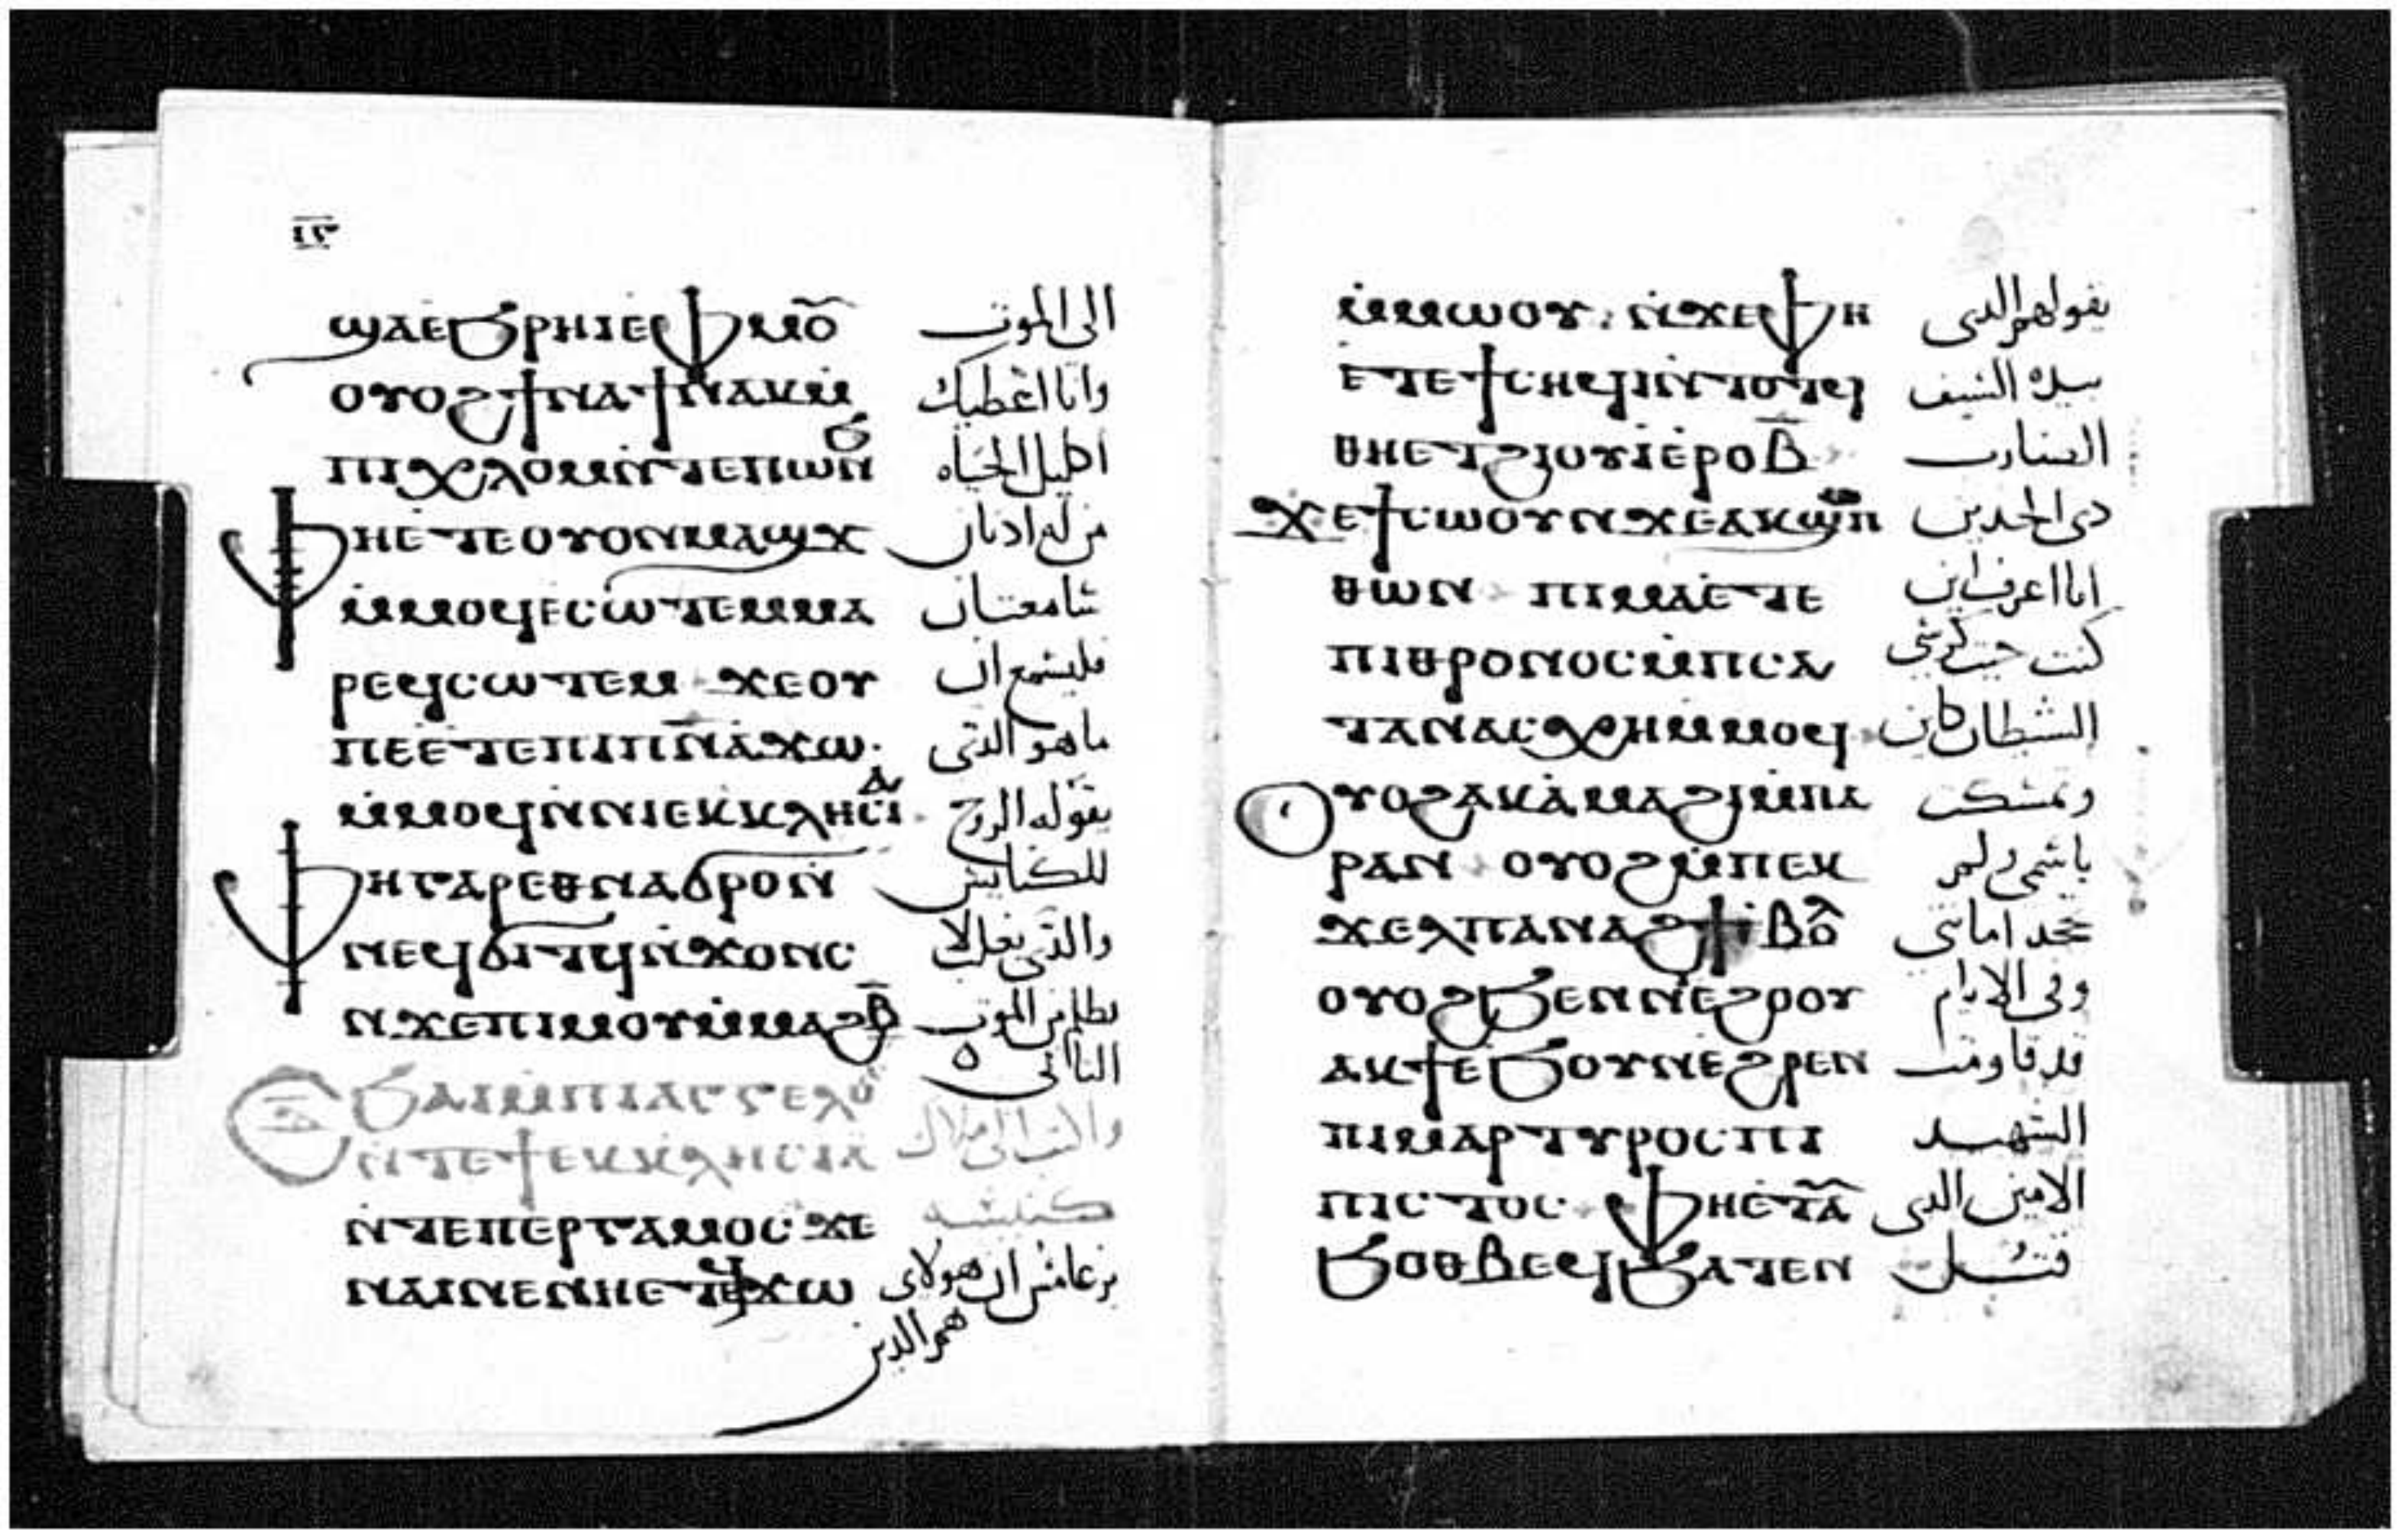 ⲓ̅ⲅ̅
ϣⲁⲉϧⲣⲏⲓⲉⲫⲙⲟ̃ الى الموت
ⲟⲩⲟϩϯⲛⲁϯⲛⲁⲕⲙ̀ وانا اعطيك
ⲡⲓⲭⲗⲟⲙⲛ̀ⲧⲉⲡⲱⲛϧ اكليل الحياه
ⲫⲏⲉ̀ⲧⲉⲟⲩⲟⲛⲙⲁϣϫ من له ادنان
ⲙ̀ⲙⲟϥⲉⲥⲱⲧⲉⲙⲙⲁ سامعتان
ⲣⲉϥⲥⲱⲧⲉⲙ ϫⲉⲟⲩ فليسمع ان
ⲡⲉⲉ̀ⲧⲉⲡⲓⲡ̅ⲛ̅ⲁ̅ϫⲱ ما هو الدى
ⲙ̀ⲙⲟϥⲛ̀ⲛⲓⲉⲕⲕⲗⲏⲥⲓⲁ يقوله الروح
ⲫⲏⲅⲁⲣⲉⲑⲛⲁϭⲣⲟⲛ̀ للكنايس
ⲛⲉϥϭⲓⲧϥⲛ̀ϫⲟⲛⲥ والدى يغلب لا
ⲛ̀ϫⲉⲡⲓⲙⲟⲩⲙ̀ⲙⲁϩⲃ̅ يظلم من الموت
التانى
ϧⲁⲓⲙ̀ⲡⲓⲁⲅⲅⲉⲗⲟⲥ
ⲛ̀ⲧⲉϯⲉⲕⲕⲗⲏⲥⲓⲁ والى ملاك
ⲛ̀ⲧⲉⲡⲉⲣⲅⲁⲙⲟⲥ ϫⲉ كنيسه
ⲛⲁⲓⲛⲉⲛⲏⲉ̀ⲧⲉϥϫⲱ برغامس ان هولاى
هم الدين
ⲙ̀ⲙⲱⲟⲩ ⲛ̀ϫⲉⲫⲏ يقولهم الدى
ⲉ̀ⲧⲉϯⲥⲏϥⲓⲛ̀ⲧⲟⲧϥ بيده السيف
ⲑⲏⲉⲧϩⲓⲟⲩⲓⲉ̀ⲣⲟⲃ̅ الضارب
ϫⲉϯⲥⲱⲟⲩⲛϫⲉⲁⲕϣⲟⲡ دى الحدين
ⲑⲱⲛ ⲡⲓⲙⲁⲉ̀ⲧⲉ انا اعرف اين
ⲡⲓⲑⲣⲟⲛⲟⲥⲙ̀ⲡⲥⲁ كنت حيت كرسى
ⲧⲁⲛⲁⲥⲭⲏⲙ̀ⲙⲟϥ الشيطان كاين
ⲟⲩⲟϩⲁⲕⲁ̀ⲙⲁϩⲓⲙ̀ⲡⲁ وتمسكت
ⲣⲁⲛ ⲟⲩⲟϩⲙ̀ⲡⲉⲕ باسمى ولم
ϫⲉⲗⲡⲁⲛⲁϩϯⲉⲃⲟⲗ تجحد امانتى
ⲟⲩⲟϩϧⲉⲛⲛⲓⲉ̀ϩⲟⲟⲩ وفى الايام
ⲁⲕϯⲉ̀ϧⲟⲩⲛⲉϩⲣⲉⲛ قد قاومت
ⲡⲓⲙⲁⲣⲧⲩⲣⲟⲥ ⲡⲓ الشهيد
ⲡⲓⲥⲧⲟⲥ ⲫⲏⲉ̀ⲧⲁ̃ الامين الدى
ϧⲟⲑⲃⲉϥϧⲁⲧⲉⲛ قتل